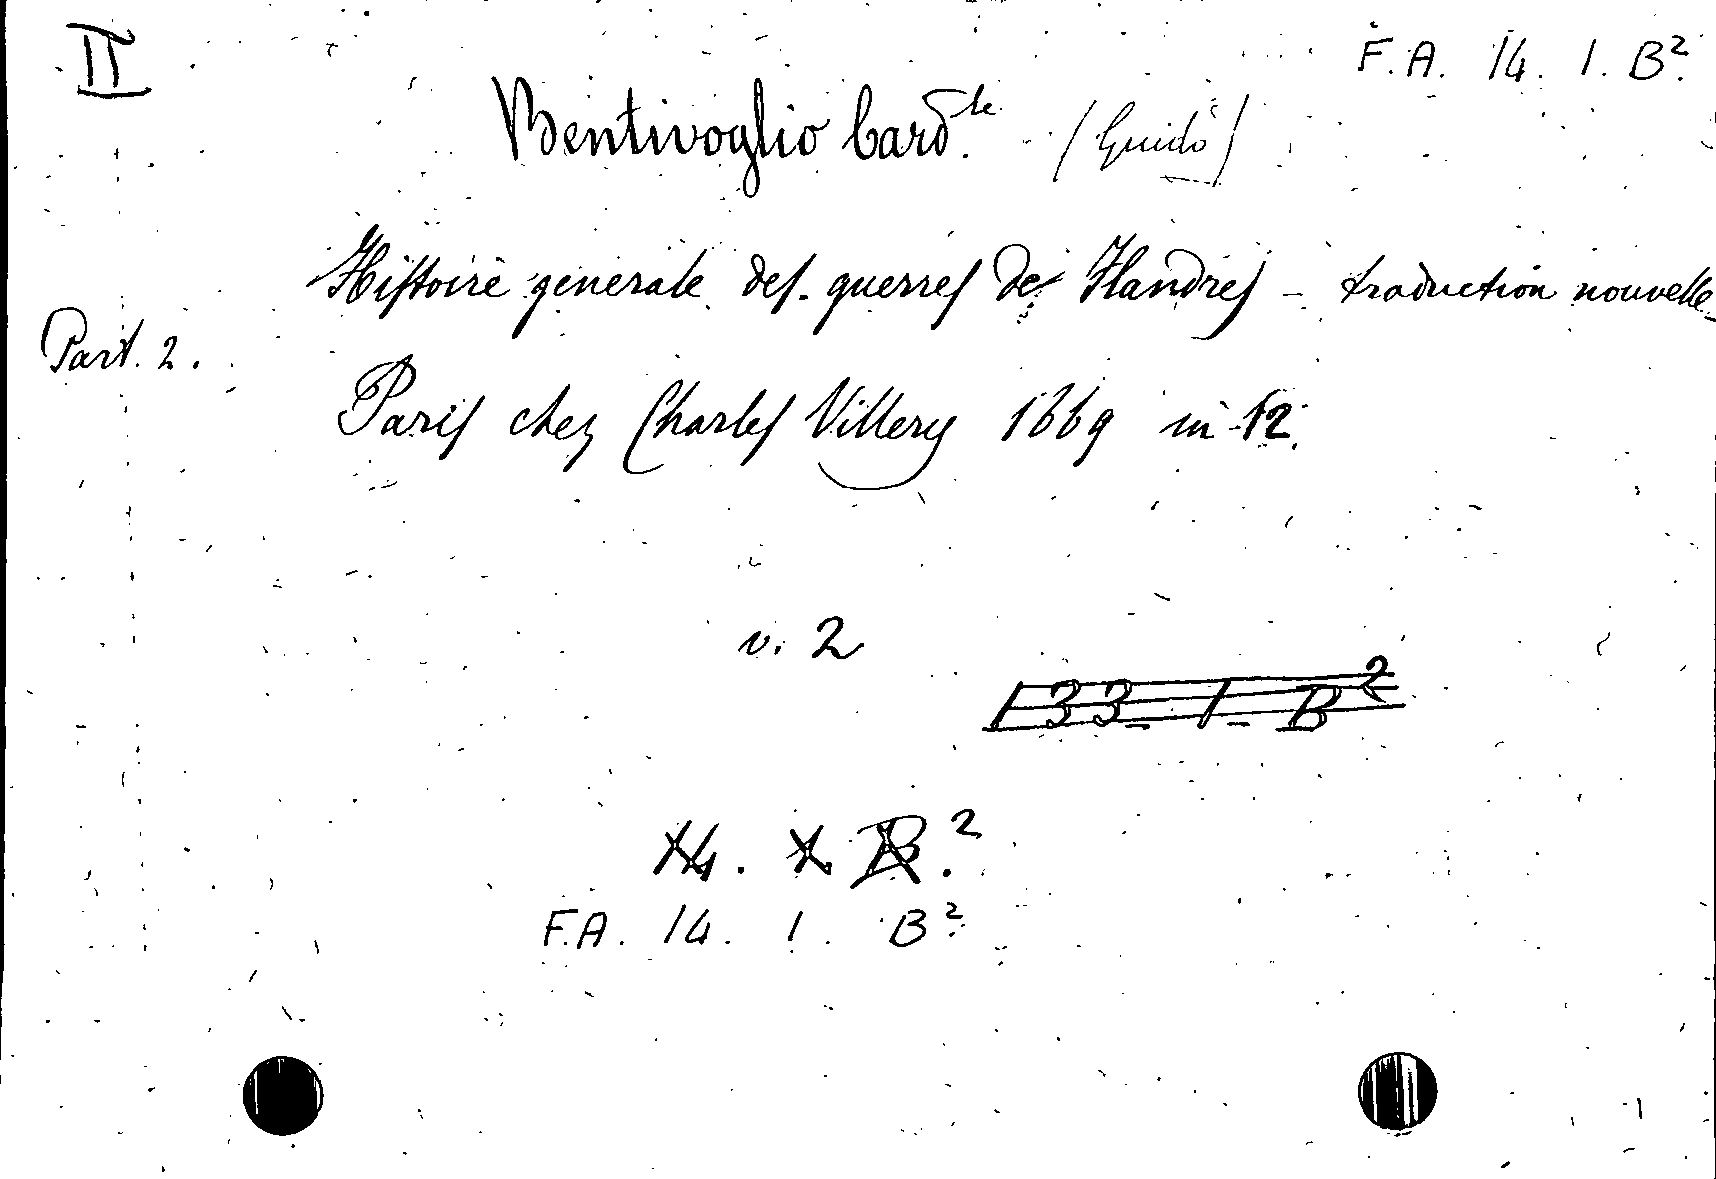 II
F.A. 14. 1. B².
Bentivoglio Card.le (Guido)
Histoire generale des guerres de Flandres - traduction nouvelle
Part. 2.
Paris chez Charles Villery 1669 in-12.
v. 2
133-1-B²
14. 1. B.²
F.A. 14. 1. B².